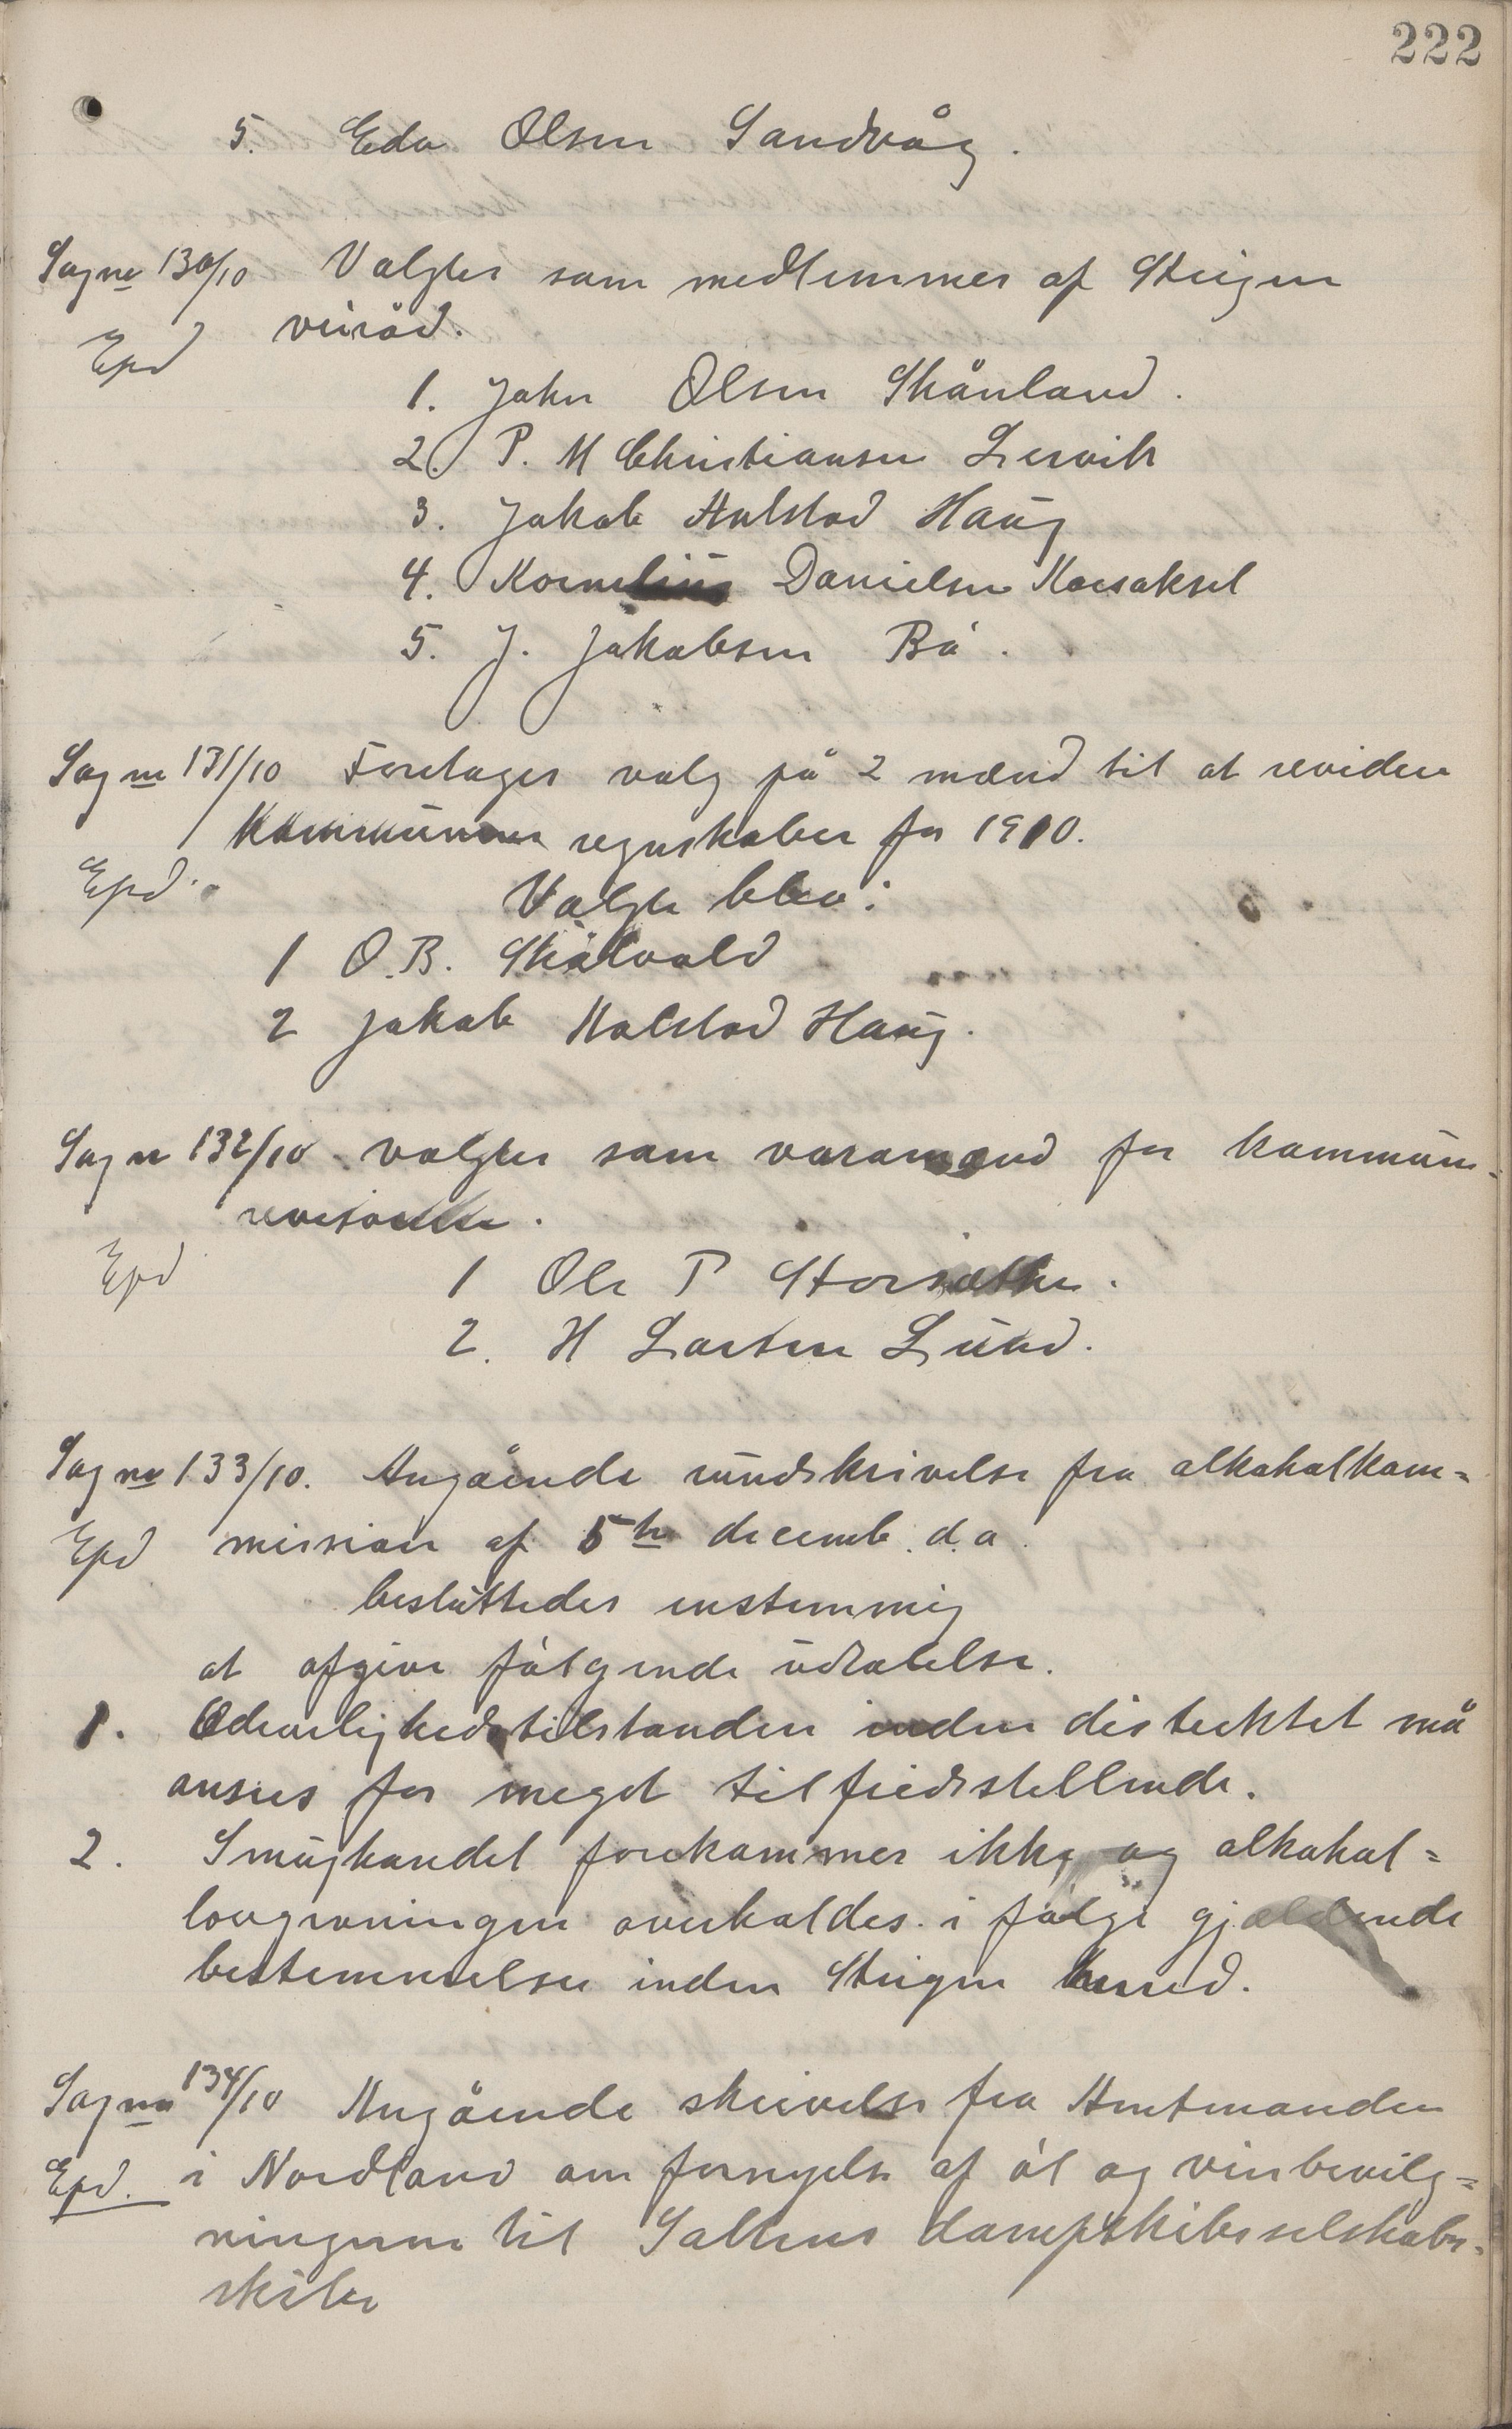 222
5. Edv Olsen Sandvåg.
Sag no 130/10 Valgtes som medlemmer af Steigen
veiråd.
Epd
1. John Olsen Skånland.
2. P. M Christiansen Lervik
3. Jakob Aalstad Haug
4. Kornelius Danielsen Korsaksel
5. J. Jakobsen Bö.
Sag no 131/10 Foretages valg på 2 mænd til at revidere
kommunens regnskaber for 1910.
Epd.
Valgte blev:
1 O. B. Skålvold
2 Jakob Aalstad Haug.
Sag no 132/10 valgtes som varamænd for kommune-
revisorerne.
Epd
1 Ole P Storsæther.
2. H Larsen Lund.
Sag no 133/10. Angående rundskrivelse fra alkoholkom-
Epd mission af 5te decemb. d. a.
besluttedes enstemmig
at afgive følgende udtalelse.
1. Ædruelighedstilstanden inden distriktet må
ansees for meget tilfredsstellende.
2. Smughandel forekommer ikke og alkohol-
lovgivningen overholdes i følge gjældende
bestemmelser inden Steigen herred.
Sag no 134/10 Angående skrivelse fra Amtmanden
Epd. i Nordland om fornyelse af øl og vinbevilg-
ningerne til Saltens dampskibsselskabs
skibe